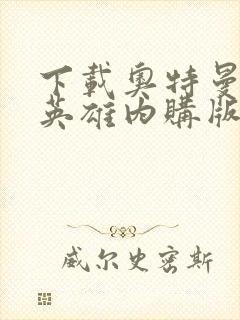 下載奧特曼
英雄内購版
威尔史密斯